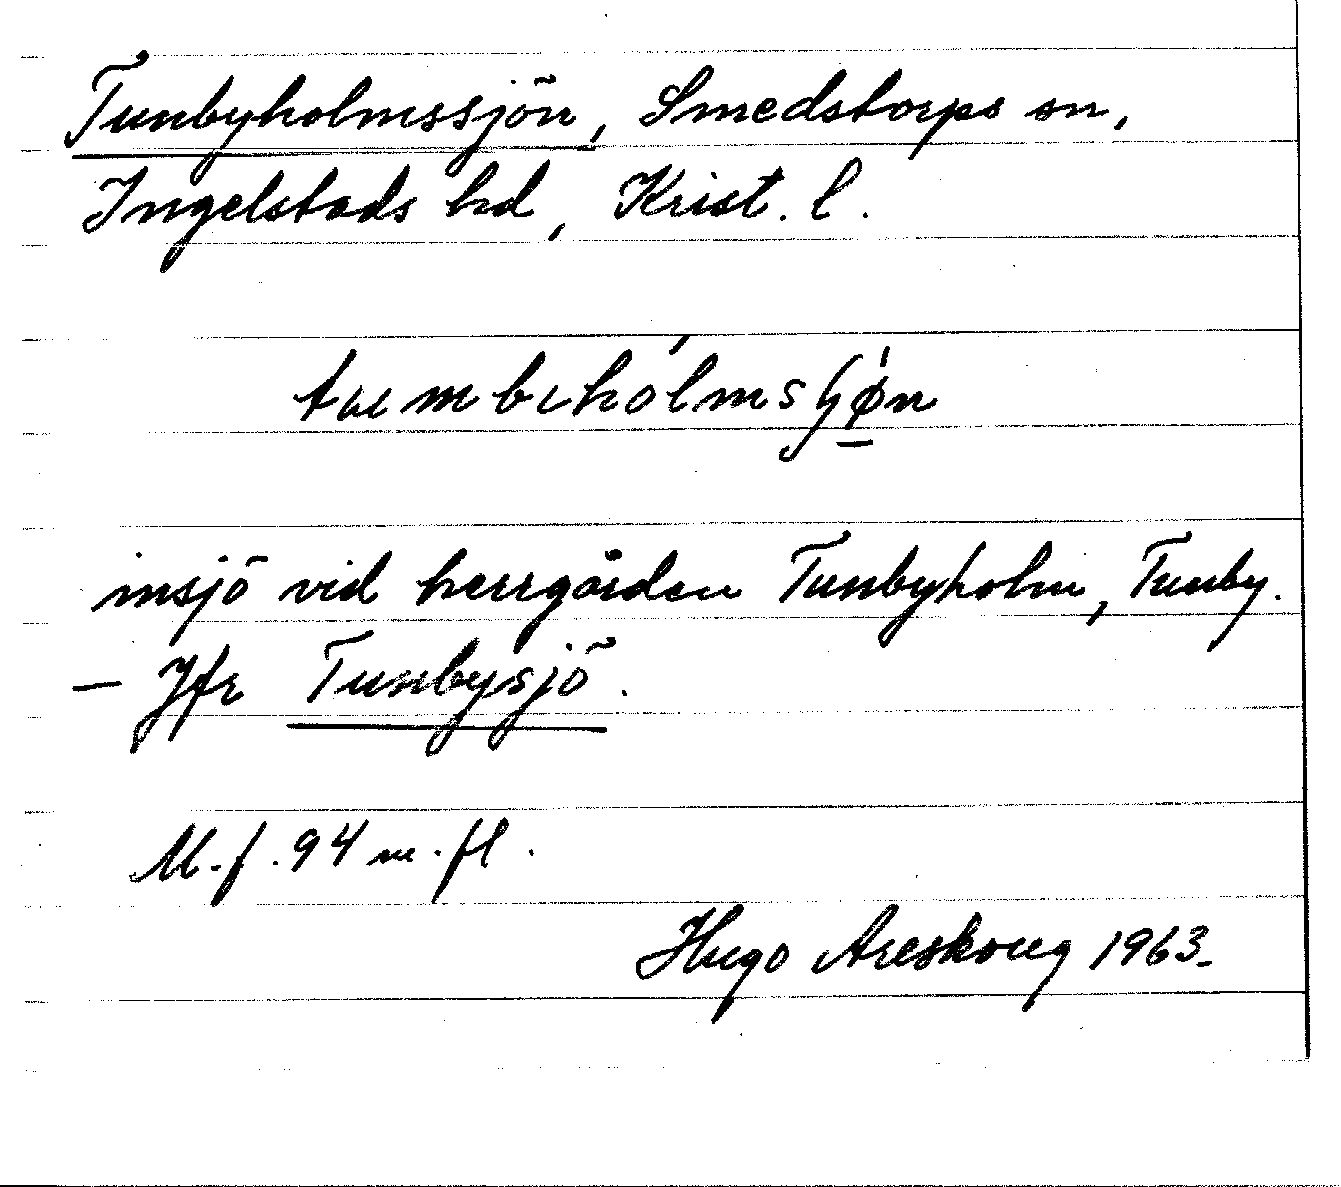 Tunbyholmssjön, Smedstorps sn,
Ingelstads hd, Krist. l.
insjö vid herrgården Tunbyholm, Tunby.
— Jfr Tunbysjö.
M.f. 94 m.fl.
Hugo Areskoug 1963.